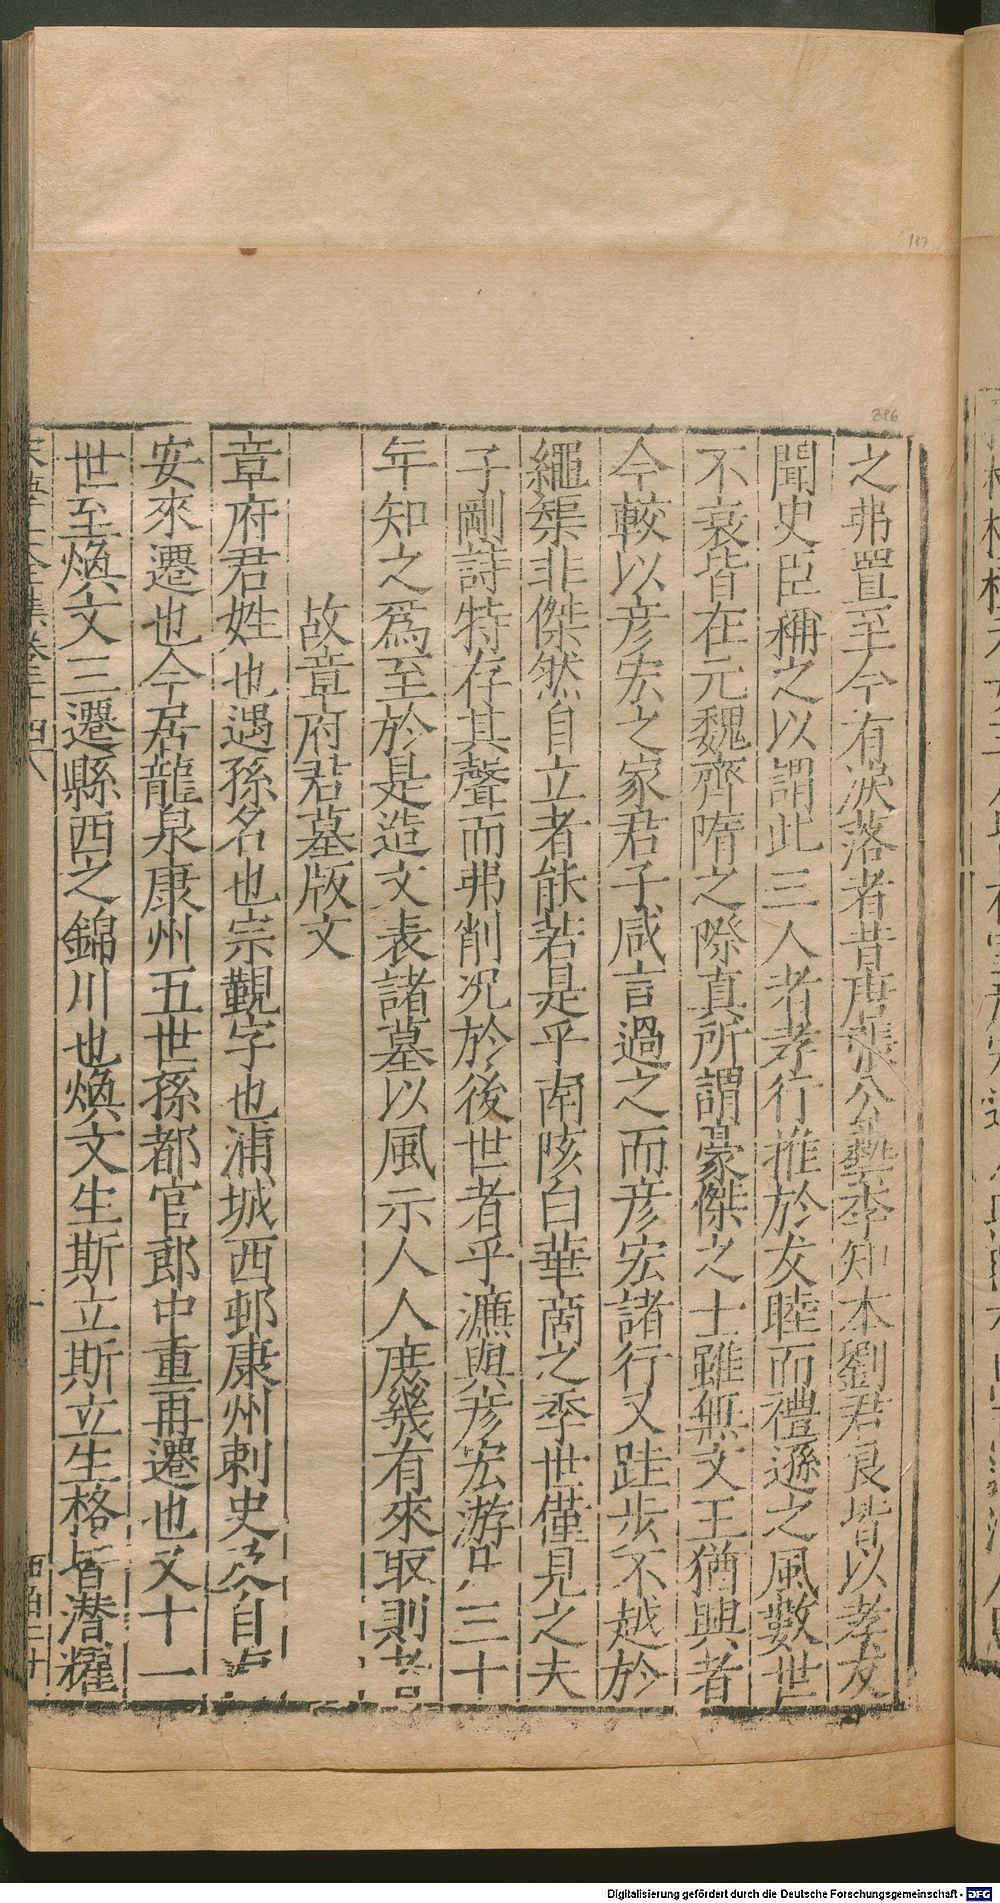 之弗置至今有淚落者昔唐張公藝李知本劉君良皆以孝友
聞史臣稱之以謂此三人者孝行推於友睦而禮遜之風數世
不衰皆在元魏齊隋之際真所謂豪傑之士雖無文王猶興者
今較以彦宏之家君子咸言過之而彦宏諸行又跬步不越於
繩榘非傑然自立者能若是乎南陔白華商之季世僅見之夫
子剛詩特存其聲而弗削况於後世者乎濂與彦宏游 三十
年知之爲至於是造文表諸墓以風示人人庶幾有來取則者
故章府君墓版文
章府君姓也遇孫名也宗觀字也浦城西邨康州刺史及自
安來遷也今居龍泉康州五世孫都官郎中重再遷也又十一
世至煥文三遷縣西之錦川也煥文生斯立斯立生格皆潜燿
宋學士全集卷三十四 八
137
286
Digitalisierung gefördert durch die Deutsche Forschungsgemeinschaft - DFG